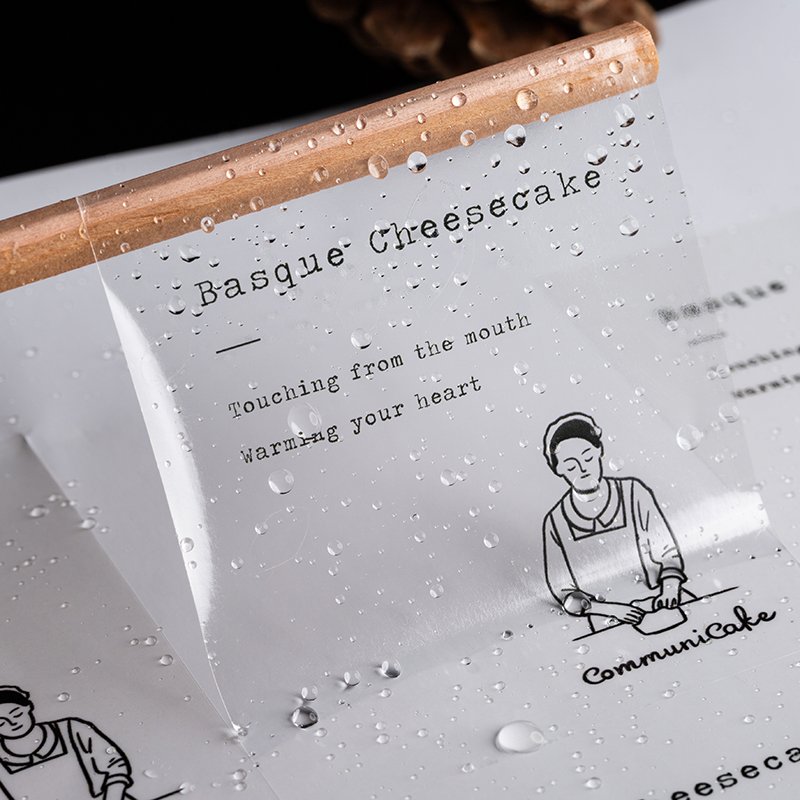 Basque Cheesecake
Touching from the mouth
Warming your heart
CommuniCake
Basque